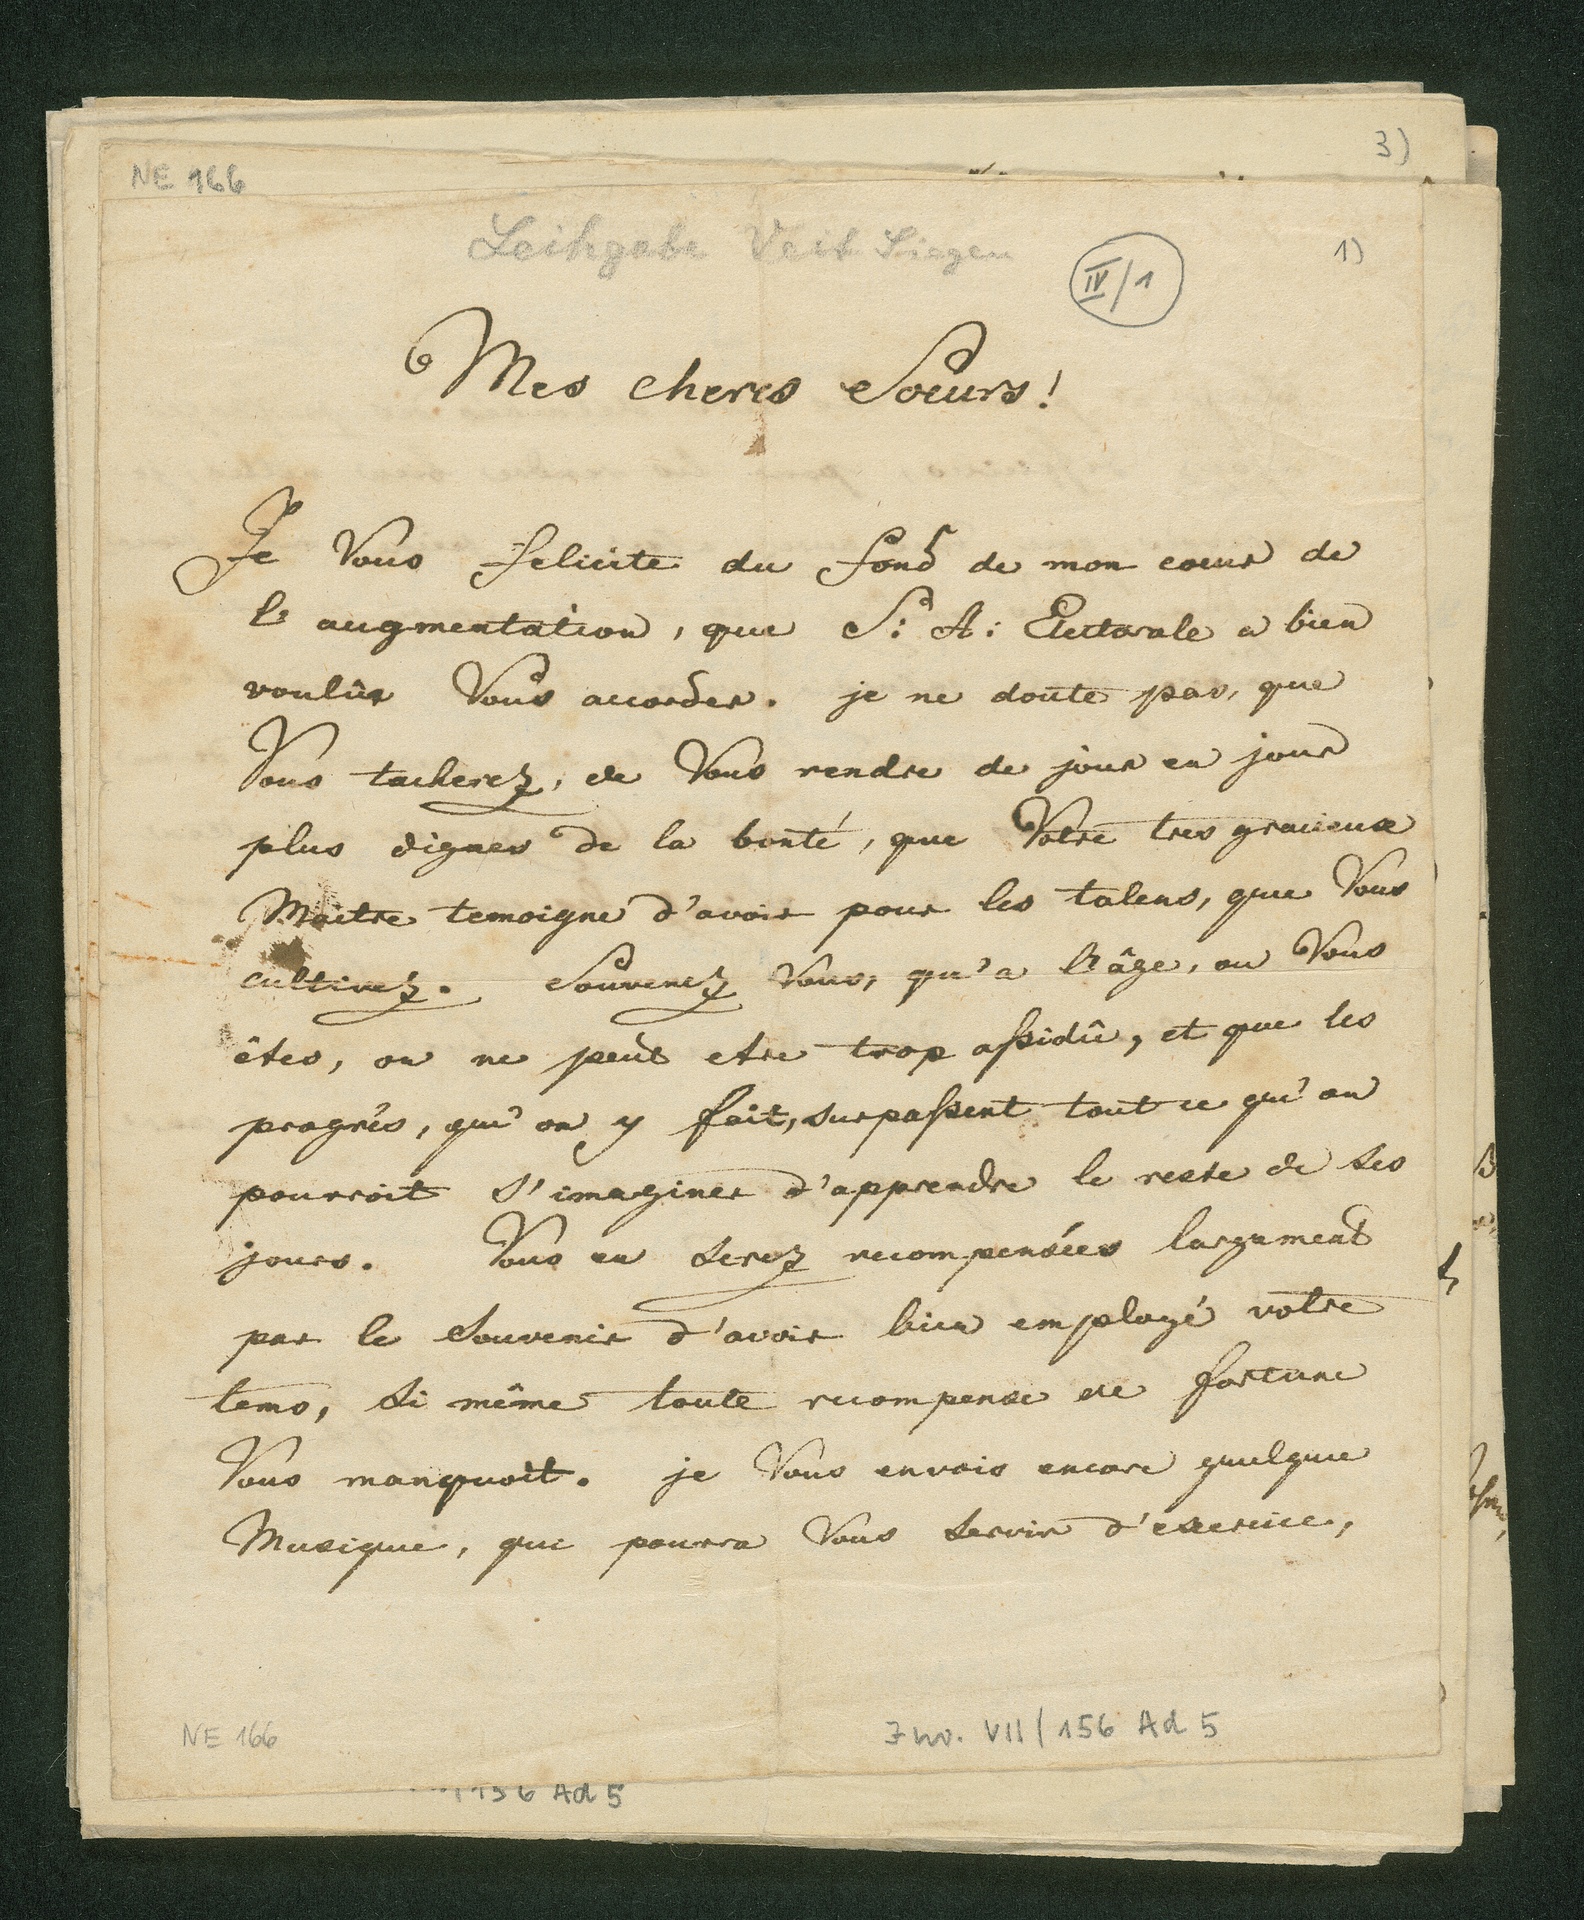 3)
NE 166
Leihgabe Veit Siegen
IV/1
1)
Mes cheres Soeurs!
Je Vous felicite du fond de mon coeur de
l'augmentation, que S: A: Electorale a bien
voulûr Vous accorder. je ne doute pas, que
Vous tacherez, de Vous rendre de jour en jour
plus dignes de la bonté, que Votre tres gracieux
Maitre temoigne d'avoir pour les talens, que Vous
cultivez. Souvenez Vous, qu'a l'âge, ou Vous
êtes, on ne peut etre trop assidû, et que les
progrés, qu'on y fait, surpassent tout ce qu'on
pourroit s'imaginer d'apprendre le reste de ses
jours. Vous en serez recompensées largement
par le souvenir d'avoir bien employé votre
tems, si même toute recompense de fortune
Vous manquoit. je Vous envois encore quelque
Musique, qui pourra Vous servir d'exercice,
NE 166
Inv. VII/156 Ad 5
156 Ad 5